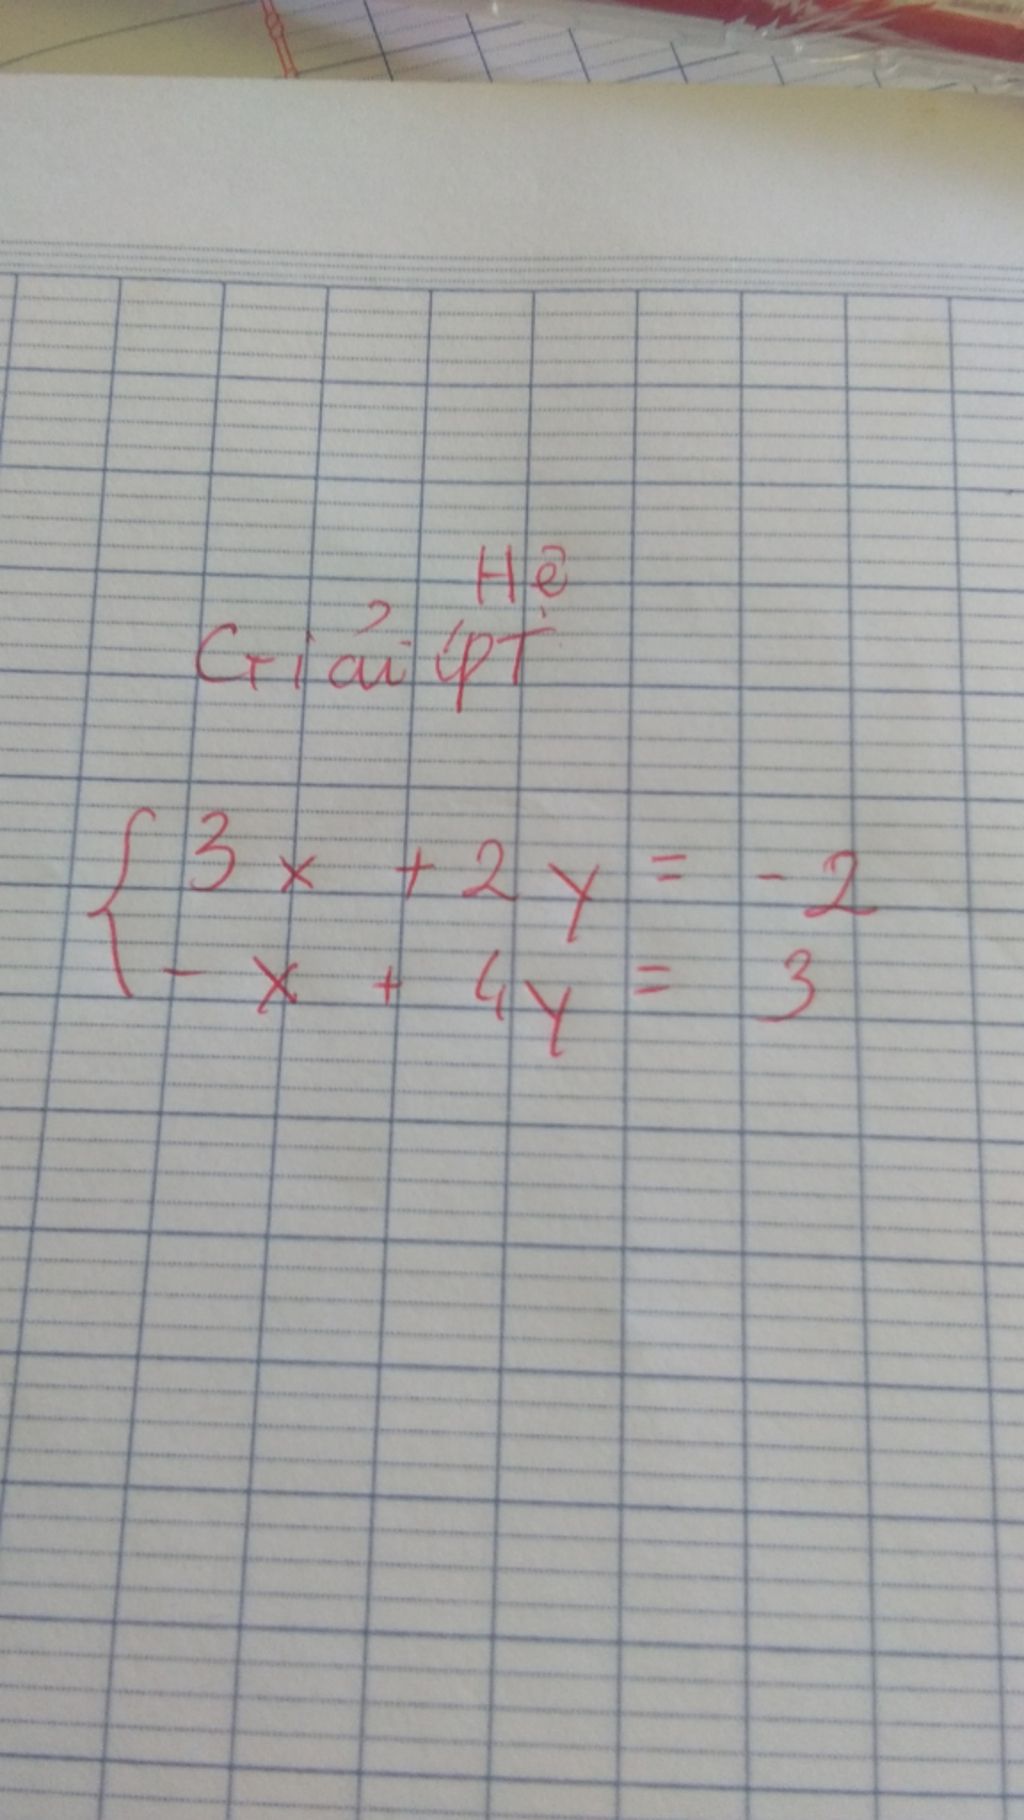 Hệ
Giải PT
3x + 2y = -2
-x + 4y = 3